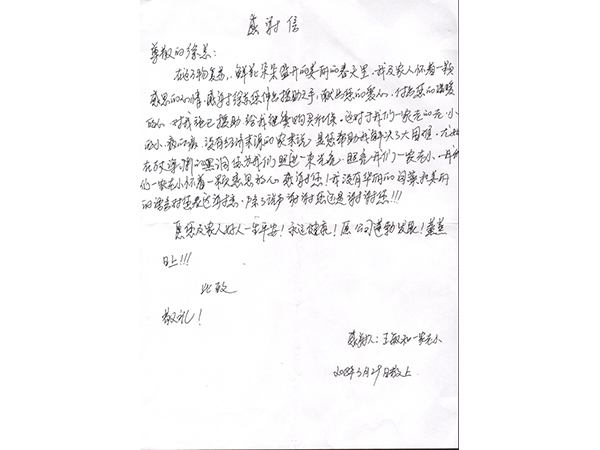 感谢信
尊敬的徐总：
在这万物复苏，鲜花朵朵盛开的美丽的春天里，我及家人怀着一颗
感恩的心情，感谢徐总您伸出援助之手，献出您的爱心，付出您的温暖
的心，对我强巴援助给我们买，这对于我们一家老的老，小
的小，病的病，没有经济来源的农家来说，是您帮助我解决了大困难，尤如
在政漆黑的黑洞给我们照进一束光亮，照亮我们一家老小，
们一家老小怀着一颗感恩的心感谢您！我没有华丽的词藻和美丽
的语言对您表达谢意，除了说声谢谢您还是谢谢您!!!
愿您及家人好人一生平安！永远健康！愿公司蓬勃发展！蒸蒸
日上!!!
此致
敬礼！
感谢人：王敏和一家老小
3月29日敬上